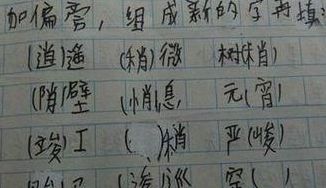 加偏旁,组成新的字再填
(逍)遥 (稍)微 树(梢)
(陗)壁 (悄)息 元(宵)
(竣)工 ( ) 严(峻)